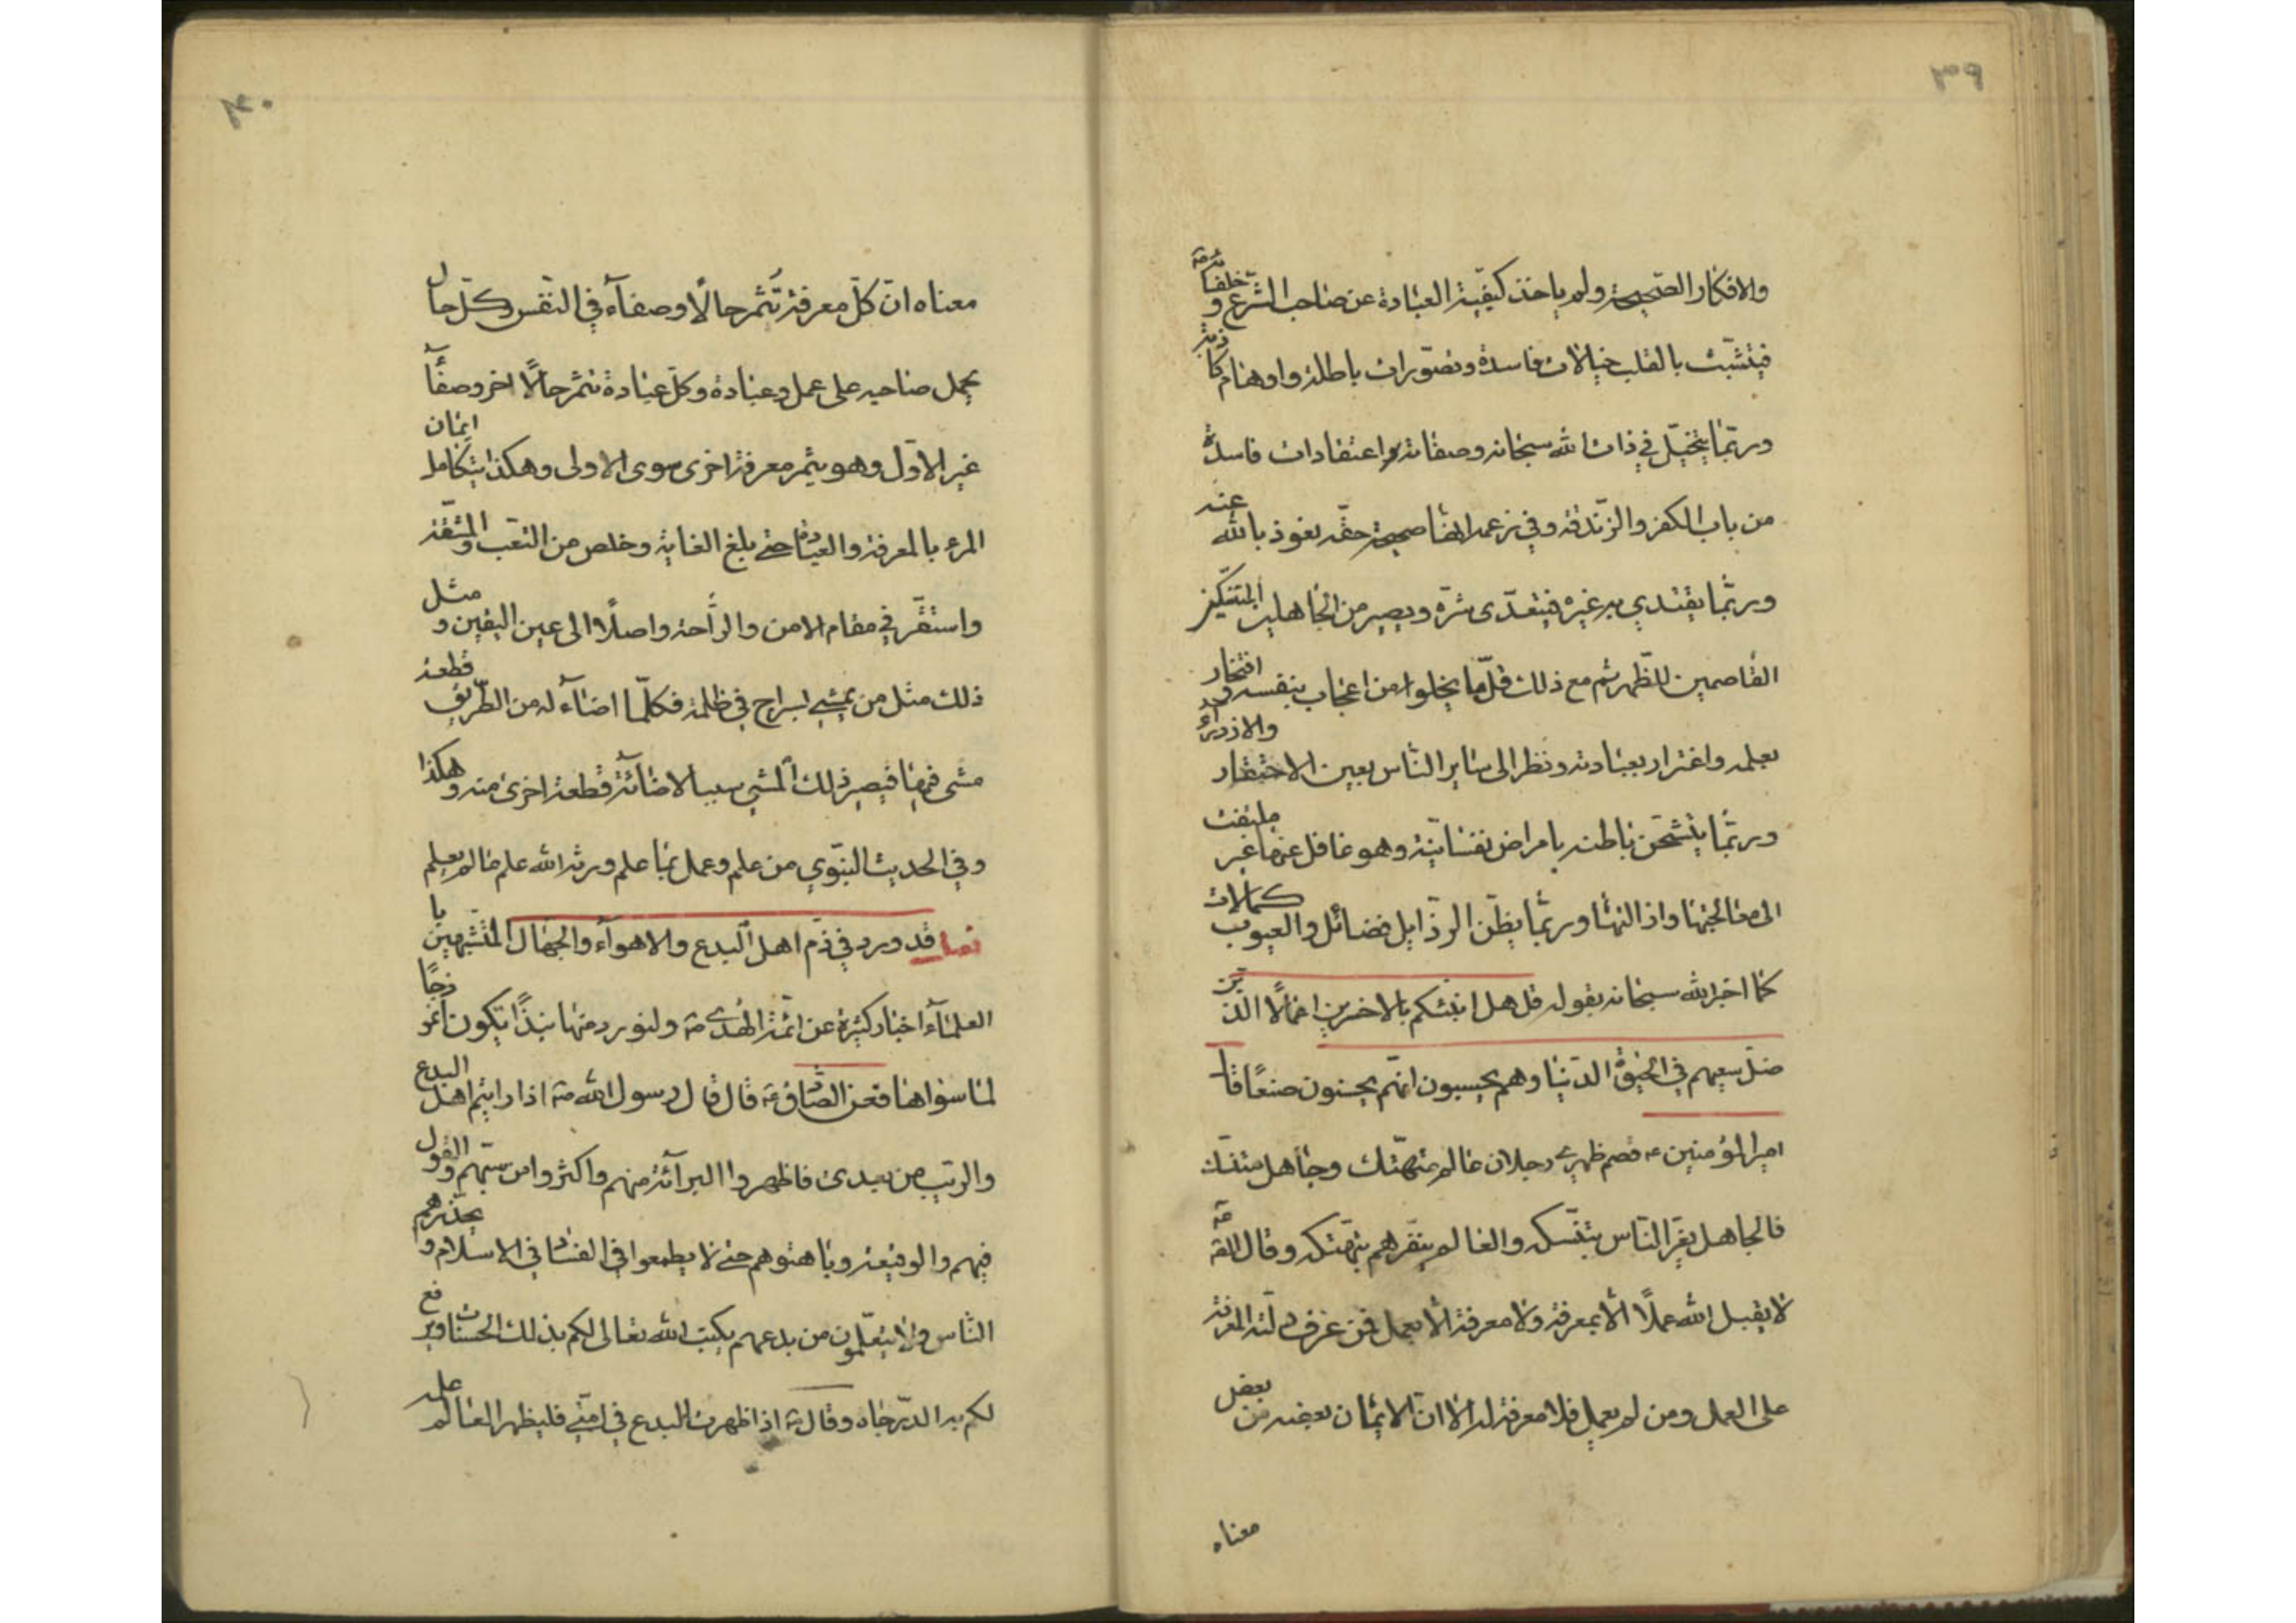 ٣٩
والافكار الصحيحة ولم ياخذ كيفية العبادة عن صاحب الشرع و خلفائه
فيتشبث بالقلب خيالات فاسدة وتصورات باطلة واوهام كاذبة
وربما يتخيل في ذات الله سبحانه وصفاته اعتقادات فاسدة
من باب الكفر والزندقة وفي زعمه انها صحيحة حقة نعوذ بالله عنه
وربما يقتدي به غيره فيتعدى شره ويصير من الجاهلين المتنسكين
القاصمين للظهر ثم مع ذلك قلما يخلوا من اعجاب بنفسه و افتخار
بعلمه واغترار بعبادته ونظر الى ساير الناس بعين الاحتقار والازدراء
وربما يتشحن باطنه بامراض نفسانية وهو غافل عنها غير ملتفت
الى معالجتها وازالتها وربما يظن الرذايل فضائل والعيوب كمالات
كما اخبر الله سبحانه بقوله قل هل انبئكم بالاخسرين اعمالا الذين
ضل سعيهم في الحيوة الدنيا وهم يحسبون انهم يحسنون صنعًا قال
امير المؤمنين ع قصم ظهري رجلان عالم متهتك وجاهل متنسك
فالجاهل يغر الناس بتنسكه والعالم ينفرهم بتهتكه وقال الصادق ع
لا يقبل الله عملًا الا بمعرفة ولا معرفة الا بعمل فمن عرف دلته المعرفة
على العمل ومن لم يعمل فلا معرفة له الا ان الايمان بعضه من بعض
معناه
٤٠
معناه ان كل معرفة تثمر حالًا وصفاء في النفس وكل حال
يحمل صاحبه على عمل وعبادة وكل عبادة تثمر حالًا اخر وصفاء
غير الاول وهو يثمر معرفة اخرى سوى الاولى وهكذا يتكامل ايمان
المرء بالمعرفة والعبادة حتى بلغ الغاية وخلص من التعب والمشقة
واستقر في مقام الامن والراحة واصلًا الى عين اليقين و مثل
ذلك مثل من يمشي بسراج في ظلمة فكلما اضاء له من الطريق قطعة
مشى فيها فيصير ذلك المشي سببا لاضائة قطعة اخرى منه وهكذا
وفي الحديث النبوي من علم وعمل بما علم ورثه الله علم ما لم يعلم
قد ورد في ذم اهل البدع والاهواء والجهال المتشبهين با
العلماء اخبار كثيرة عن ائمة الهدى ع ولنورد منها نبذًا يكون انموذجًا
لما سواها فعن الصادق ع قال قال رسول الله ص اذا رايتم اهل البدع
والريب من بعدى فاظهروا البرائة منهم واكثروا من سبهم والقول
فيهم والوقيعة وباهتوهم حتى لا يطمعوا في الفساد في الاسلام و يحذرهم
الناس ولا يتعلمون من بدعهم يكتب الله تعالى لكم بذلك الحسنات ويرفع
لكم به الدرجات وقال ص اذا ظهرت البدع في امتي فليظهر العالم علمه